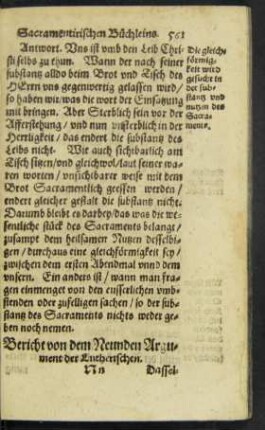 Sacramentirischen Büchleins. 561
Antwort. Vns ist vmb den Leib Chri-
sti selbs zu thun. Wann der nach seiner
substantz alldo beim Brot vnd Tisch des
HErrn vns gegenwertig gelassen wird/
so haben wir/was die wort der Einsatzung
mit bringen. Aber Sterblich sein vor der
Afferstehung/ vnd nun vnsterblich in der
Herrligkeit/ das endert die substantz des
Leibs nicht. Wie auch sichtbarlich am
Tisch sitzen/ond gleichwol/laut seiner wa-
ren worten/ vnsichtbarer weise mit dem
Brot Sacramentlich geessen werden/
endert gleicher gestalt die substantz nicht.
Darumb bleibt es darbey/das was die we-
sentliche stück des Sacraments belangt/
zusampt dem heilsamen Nutzen desselbi-
gen/ durchaus eine gleichförmigkeit sey/
zwischen dem ersten Abendmal vnnd dem
vnsern. Ein anders ist/ wann man fra-
gen einmenget von den eusserlichen vmb-
stenden oder zufelligen sachen/ so der sub-
stantz des Sacraments nichts weder ge-
ben noch nemen.
Die gleich-
förmig-
keit wird
gesucht in
der sub-
stantz vnd
nutzen des
Sacra-
ments.
Bericht von dem Neunden Argu-
ment der Lutherischen.
Nn Dassel-